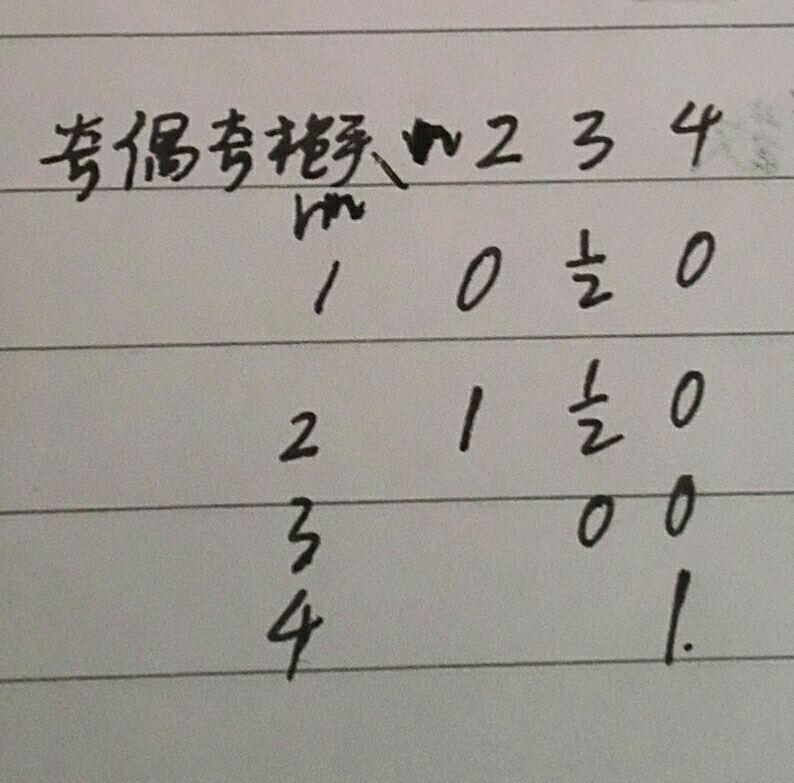 奇偶奇枪手\n 2 3 4
m
1 0 1/2 0
2 1 1/2 0
3 0 0
4 1.